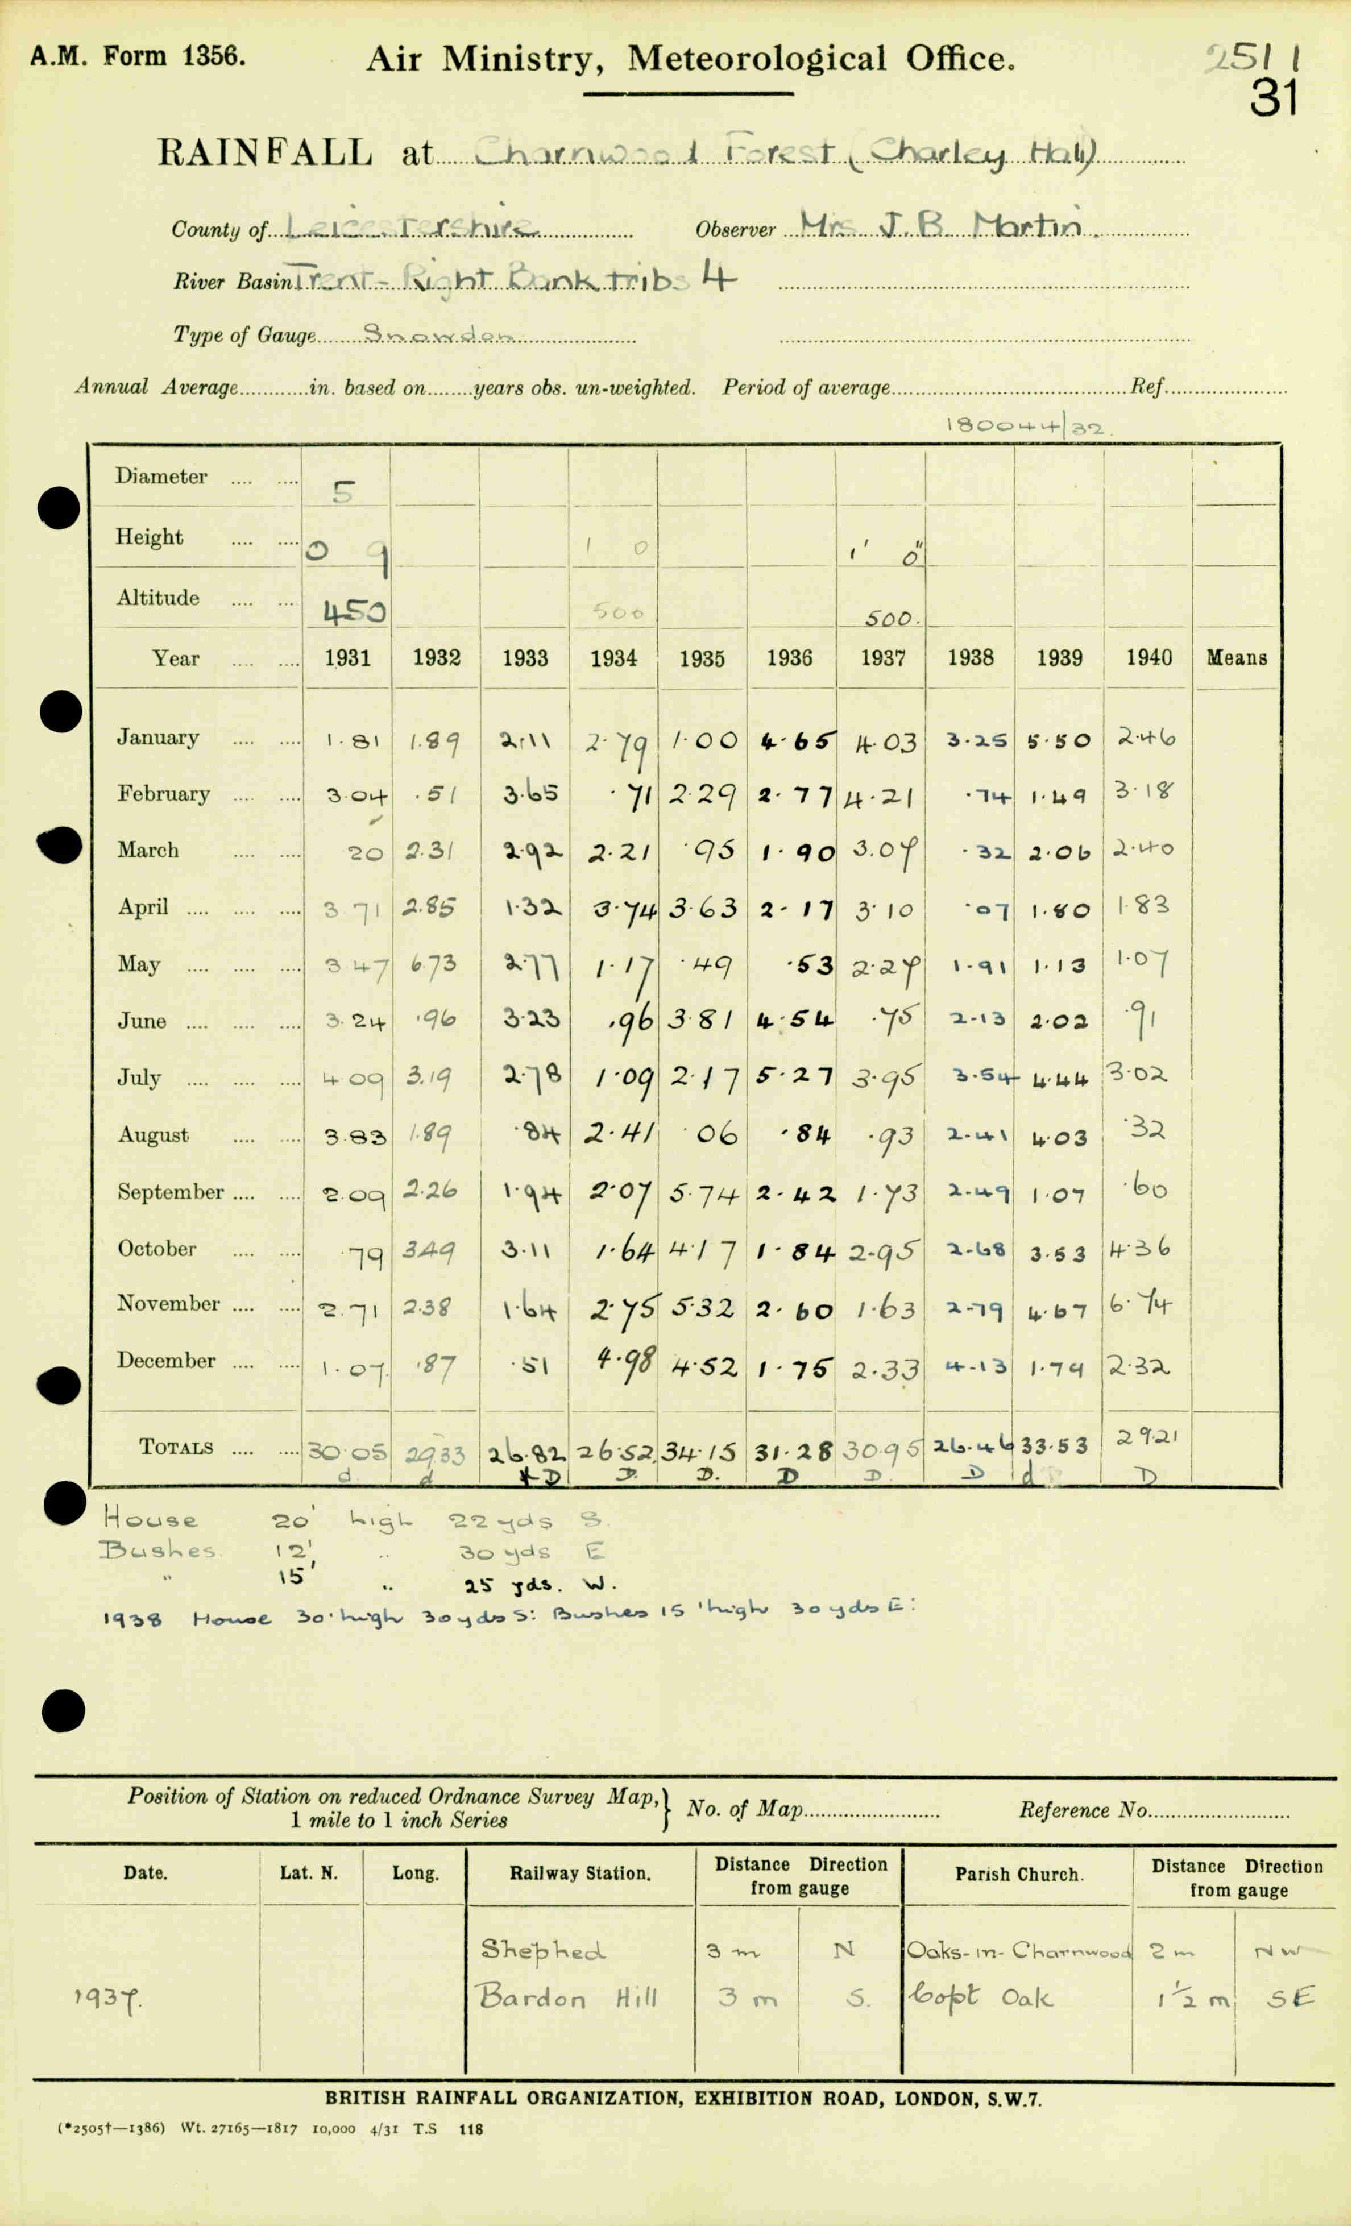 A.M. Form 1356. Air Ministry, Meteorological Office. 2511
31
RAINFALL at Charnwood Forest (Charley Hall)
County of Leicestershire Observer Mrs J.B. Martin.
River Basin Trent - Right Bank tribs 4
Type of Gauge Snowdon
Annual Average............in. based on........years obs. un-weighted. Period of average........................................Ref.....................
180044/32.
Diameter .... .... 5
Height .... .... 0 9 1 0 1' 0"
Altitude .... .... 450 500 500.
Year .... .... 1931 1932 1933 1934 1935 1936 1937 1938 1939 1940 Means
January .... .... 1.81 1.89 2.11 2.79 1.00 4.65 4.03 3.25 5.50 2.46
February .... .... 3.04 .51 3.65 .71 2.29 2.77 4.21 .74 1.49 3.18
March .... .... 20 2.31 2.92 2.21 .95 1.90 3.07 .32 2.06 2.40
April .... .... .... 3 71 2.85 1.32 3.74 3.63 2.17 3.10 .07 1.80 1.83
May .... .... .... 3 47 6.73 2.77 1.17 .49 .53 2.27 1.91 1.13 1.07
June .... .... .... 3.24 .96 3.23 .96 3.81 4.54 .75 2.13 2.02 .91
July .... .... .... 4 09 3.19 2.78 1.09 2.17 5.27 3.95 3.54 4.44 3.02
August .... .... 3.83 1.89 .84 2.41 06 .84 .93 2.41 4.03 .32
September .... .... 2.09 2.26 1.94 2.07 5.74 2.42 1.73 2.49 1.07 .60
October .... .... .79 3.49 3.11 1.64 4.17 1.84 2.95 2.68 3.53 4.36
November .... .... 2.71 2.38 1.64 2.75 5.32 2.60 1.63 2.79 4.67 6.74
December .... .... 1.07. .87 .51 4.98 4.52 1.75 2.33 4.13 1.79 2.32
TOTALS .... .... 30.05 29.33 26.82 26.52 34.15 31.28 30.95 26.46 33.53 29.21
d d D D. D. D D. D d D
House 20' high 22 yds S.
Bushes 12' .. 30 yds E
" 15' .. 25 yds. W.
1938 House 30' high 30 yds S: Bushes 15' high 30 yds E:
Position of Station on reduced Ordnance Survey Map, } No. of Map........................ Reference No.........................
1 mile to 1 inch Series
Date. Lat. N. Long. Railway Station. Distance Direction from gauge Parish Church. Distance Direction from gauge
Shephed 3 m N Oaks-in-Charnwood 2 m NW
1937. Bardon Hill 3 m S. Copt Oak 1½ m SE
BRITISH RAINFALL ORGANIZATION, EXHIBITION ROAD, LONDON, S.W.7.
(*2505†—1386) Wt. 27165—1817 10,000 4/31 T.S 118